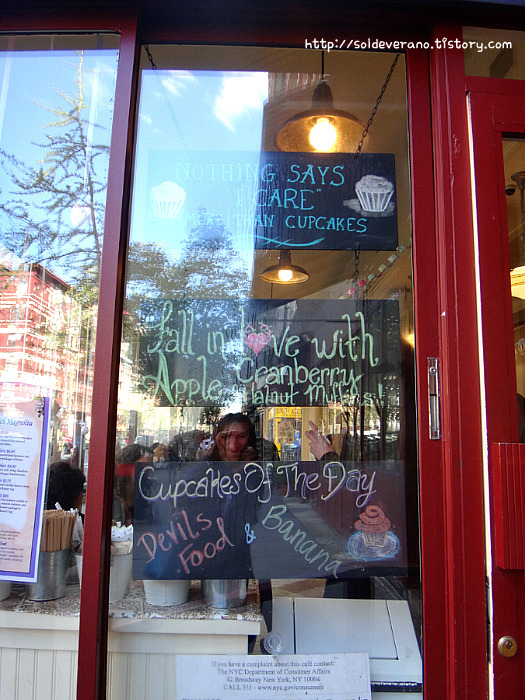 http://soldeverano.tistory.com
NOTHING SAYS
"I CARE"
MORE THAN CUPCAKES
fall in love with
Apple Cranberry
Walnut Muffins!
Cupcakes Of The Day
Devils
Food &
Banana
Magnolia
If you have a complaint about this café contact:
The NYC Department of Consumer Affairs
42 Broadway New York, NY 10004
CALL 311 - www.nyc.gov/consumers